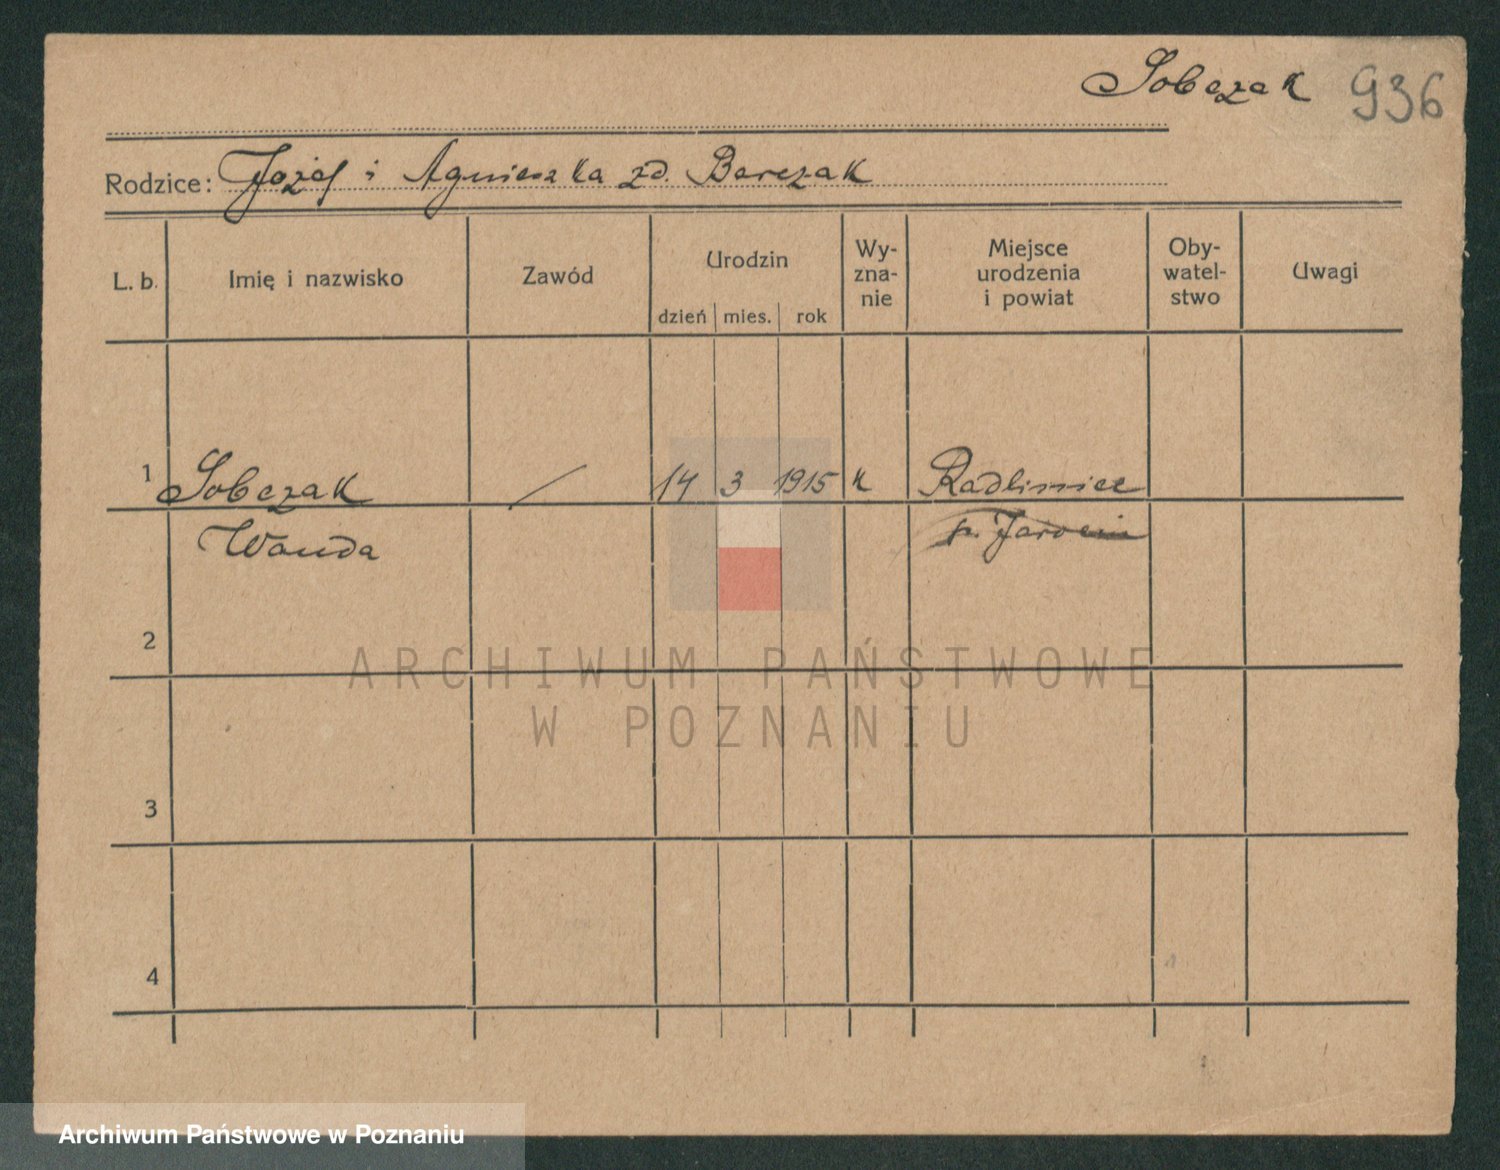 Sobczak 936
Rodzice: Józef i Agnieszka zd. Barczak
L. b. Imię i nazwisko Zawód Urodzin Wy-zna-nie Miejsce urodzenia i powiat Oby-watel-stwo Uwagi
dzień mies. rok
1 Sobczak / 14 3 1915 k Radlimiec
Wanda p. Jarocin
2
ARCHIWUM PAŃSTWOWE
W POZNANIU
3
4
Archiwum Państwowe w Poznaniu